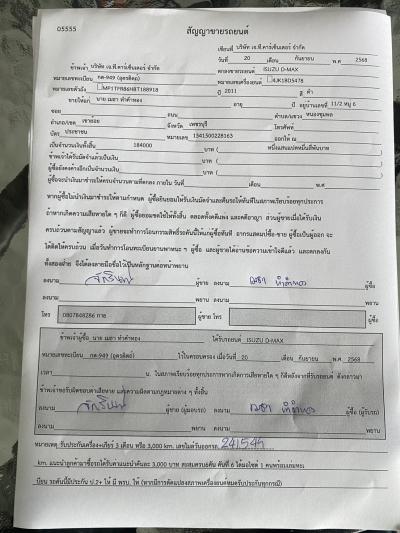 05555
สัญญาขายรถยนต์
เขียนที่ บริษัท เอ.ที.คาร์เซ็นเตอร์ จำกัด
วันที่ 20 เดือน กันยายน พ.ศ 2568
ข้าพเจ้า บริษัท เอ.ที.คาร์เซ็นเตอร์ จำกัด ตกลงขายรถยนต์ ISUZU D-MAX
หมายเลขทะเบียน กด-949 (อุตรดิตถ์) หมายเลขเครื่องยนต์ 4JK1BD5478
หมายเลขตัวถัง MP1TFR86HBT188918 ปี 2011 สี ดำ
ขายให้แก่ นาย เมธา ทำคำทอง อายุ ปี อยู่บ้านเลขที่ 11/2 หมู่ 6
ซอย ถนน ตำบล/แขวง หนองชุมพล
อำเภอ/เขต เขาย้อย จังหวัด เพชรบุรี โทรศัพท์
บัตร ประชาชน หมายเลข 1341500228163 ออกให้ ณ
เป็นจำนวนเงินทั้งสิ้น 184000 บาท ( หนึ่งแสนแปดหมื่นสี่พันบาท
ข้าพเจ้าได้รับมัดจำแล้วเป็นเงิน บาท (
ผู้ซื้อยังคงค้างอีกเป็นจำนวนเงิน บาท (
ผู้ซื้อจะนำเงินมาชำระให้ครบจำนวนตามที่ตกลง ภายใน วันที่ เดือน พ.ศ
หากผู้ซื้อไม่นำเงินมาชำระให้ตามกำหนด ผู้ซื้อยินยอมให้ริบเงินมัดจำและคืนรถให้ทันทีในสภาพเรียบร้อยทุกประการ
ถ้าหากเกิดความเสียหายใด ๆ ก็ดี ผู้ซื้อยอมชดใช้ให้ทั้งสิ้น ตลอดทั้งคดีแพ่ง และคดีอาญา ส่วนผู้ขายเมื่อได้รับเงิน
ครบถ้วนตามสัญญาแล้ว ผู้ขายจะทำการโอนกรรมสิทธิ์รถคันนี้ให้แก่ผู้ซื้อทันที
ได้คิดให้ครบถ้วน
ทั้งสองฝ่าย จึงได้ลงลายมือชื่อไว้เป็นหลักฐานต่อหน้าพยาน
ลงนาม ผู้ขาย ลงนาม เมธา ทำคำทอง ผู้ซื้อ
ลงนาม พยาน ลงนาม พยาน
โทร 0807848286 กาย ผู้ขาย โทร ผู้ซื้อ
ข้าพเจ้าผู้ซื้อ นาย เมธา ทำคำทอง ได้รับรถยนต์ ISUZU D-MAX
หมายเลขทะเบียน กด-949 (อุตรดิตถ์) ไว้ในครอบครอง เมื่อวันที่ 20 เดือน กันยายน พ.ศ 2568
เวลา น. ในสภาพเรียบร้อยทุกประการหากเกิดการเสียหายใด ๆ
ข้าพเจ้าขอรับผิดชอบความเสียหาย และความผิดตามกฎหมายต่าง ๆ ทั้งสิ้น
ลงนาม ผู้ขาย (ผู้มอบรถ) ลงนาม เมธา ทำคำทอง ผู้ซื้อ (ผู้รับรถ)
ลงนาม พยาน ลงนาม พยาน
หมายเหตุ รับประกันเครื่องเกียร์ 3 เดือน หรือ 3,000 km. เลขไมล์วันออกรถ 241544
km. แนะนำลูกค้ามาซื้อรถได้รับค่าแนะนำคันละ 3,000 บาท สะสมครบ6คัน คันที่ 6 ได้มอไซค์ 1 คันพร้อมเล่มทะ
เบียน รถคันนี้มีประกัน ป.2+ ให้ มี พรบ. ให้ (หากมีการดัดแปลงสภาพเครื่องยนต์หมดรับประกันทุกกรณี)